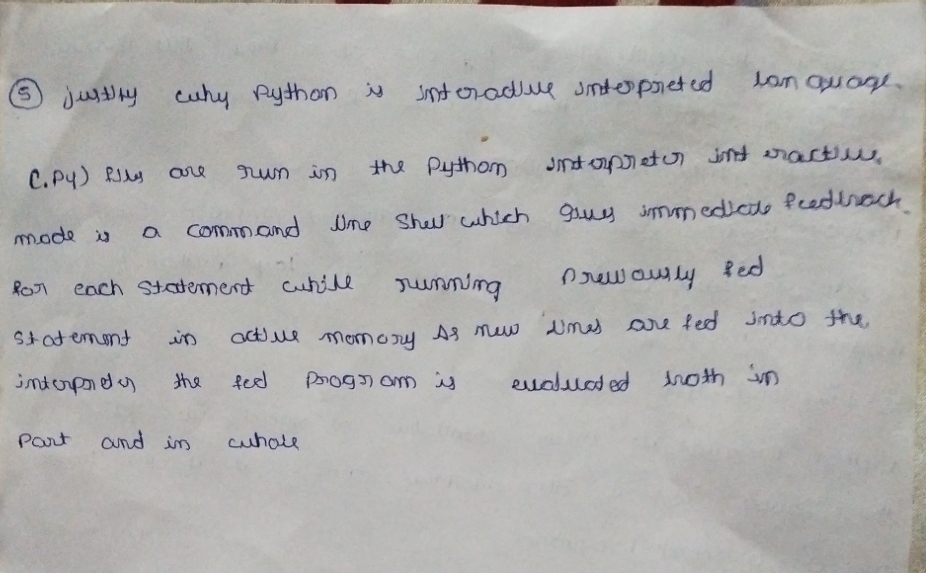 ⑤ justify why Python is interactive interpreted language.
(.Py) files are run in the Python interpreter interactive
mode is a command line shell which gives immediate feedback
for each statement while running previously fed
statement in active memory As new lines are fed into the
interpreter the fed program is evaluated both in
Part and in whole